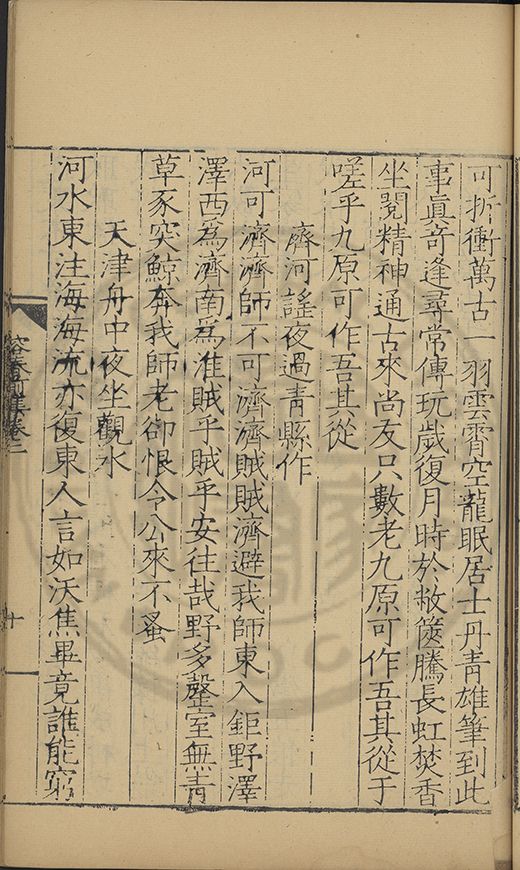 可折衝萬古一羽雲霄空龍眠居士丹青雄筆到此
事眞奇逢尋常傳玩歲復月時於敝篋騰長虹焚香
坐閱精神通古來尚友只數老九原可作吾其從于
嗟乎九原可作吾其從
濟河謠夜過青縣作
河可濟濟師不可濟濟賊賊濟避我師東入鉅野澤
澤西爲濟南爲淮賊乎賊乎安往哉野多罄室無青
草豕突鯨奔我師老卻恨令公來不蚤
天津舟中夜坐觀水
河水東注海海流亦復東人言如沃焦畢竟誰能窮
容春 集卷二
十